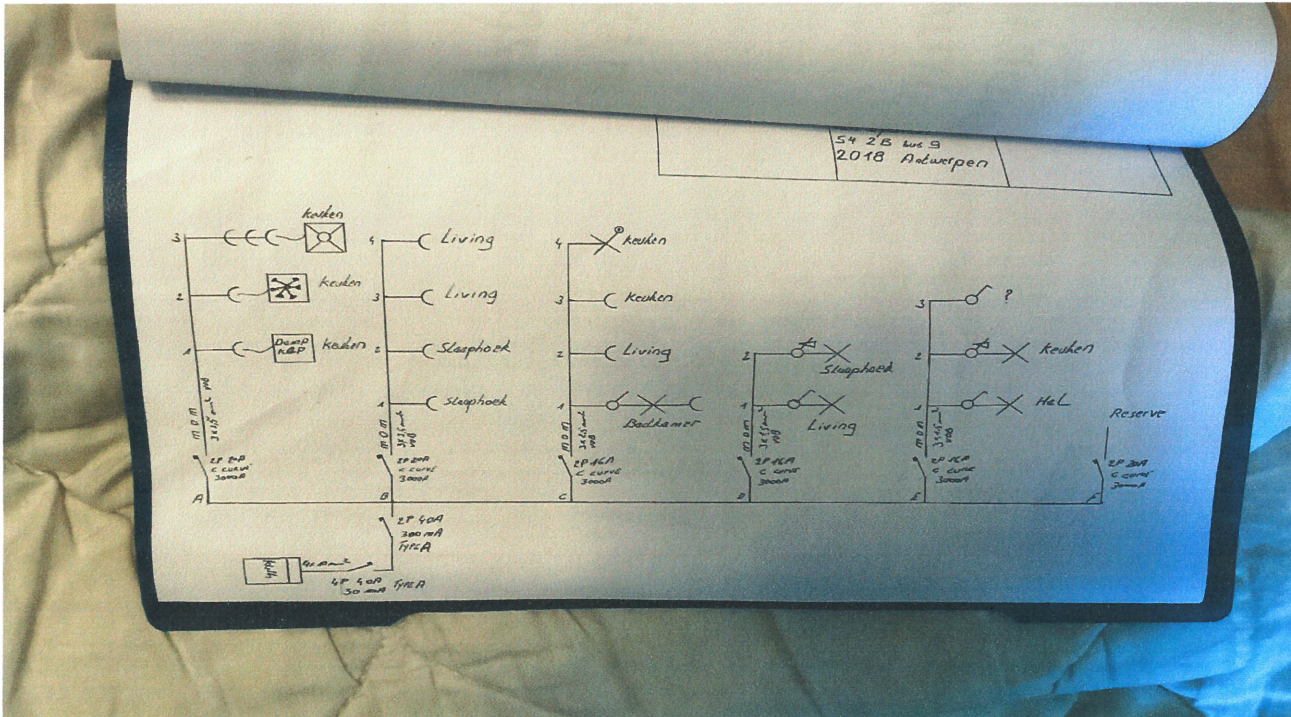 54 2'B bus 9
2018 Antwerpen
Keuken
3
2
Keuken
1
Damp
KAP
Keuken
MOM
3x2,5mm² VOB
2P 20A
C CURVE
3000A
A
4
Living
3
Living
2
Slaaphoek
1
Slaaphoek
MOM
3x2,5mm²
VOB
2P 20A
C CURVE
3000A
B
4
Keuken
3
Keuken
2
Living
1
Badkamer
MOM
3x2,5mm²
VOB
2P 16A
C CURVE
3000A
C
2
Slaaphoek
1
Living
MOM
3x1,5mm²
VOB
2P 16A
C CURVE
3000A
D
3
?
2
Keuken
1
Hal
MOM
3x1,5mm²
VOB
2P 16A
C CURVE
3000A
E
Reserve
2P 20A
C CURVE
3000A
F
2P 40A
300mA
TYPE A
kWh
4P 40A TYPE A
30mA